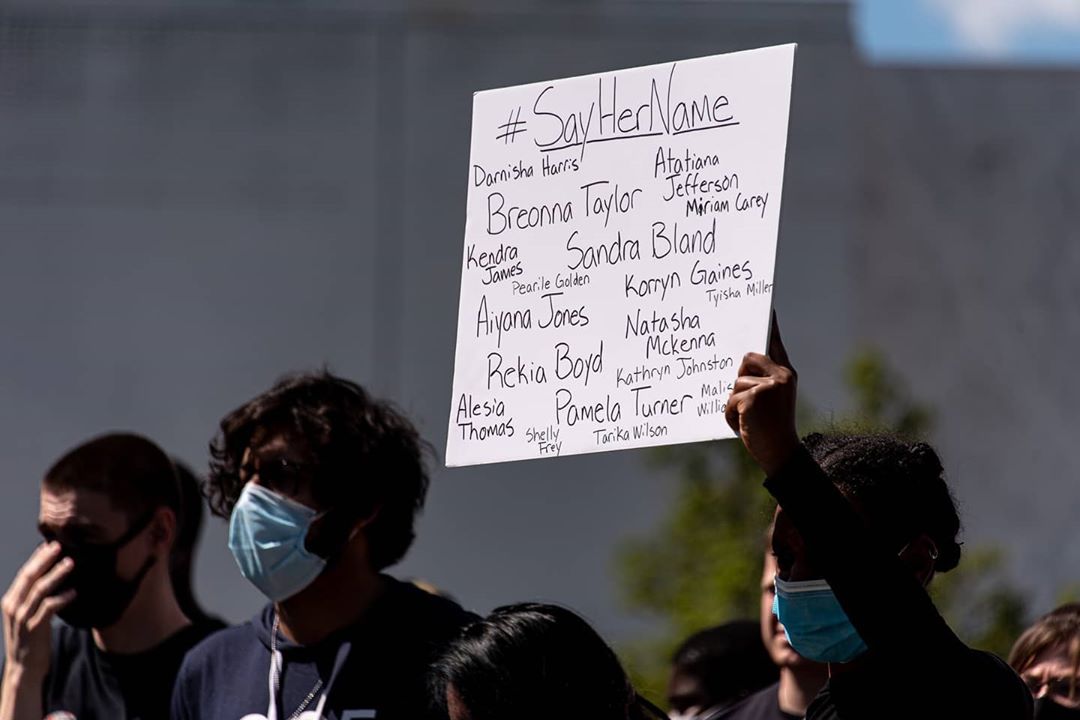 #SayHerName
Darnisha Harris
Atatiana
Jefferson
Breonna Taylor
Miriam Carey
Kendra
James
Sandra Bland
Pearile Golden
Korryn Gaines
Tyisha Miller
Aiyana Jones
Natasha
Mckenna
Rekia Boyd
Kathryn Johnston
Alesia
Thomas
Pamela Turner
Shelly
Frey
Tarika Wilson